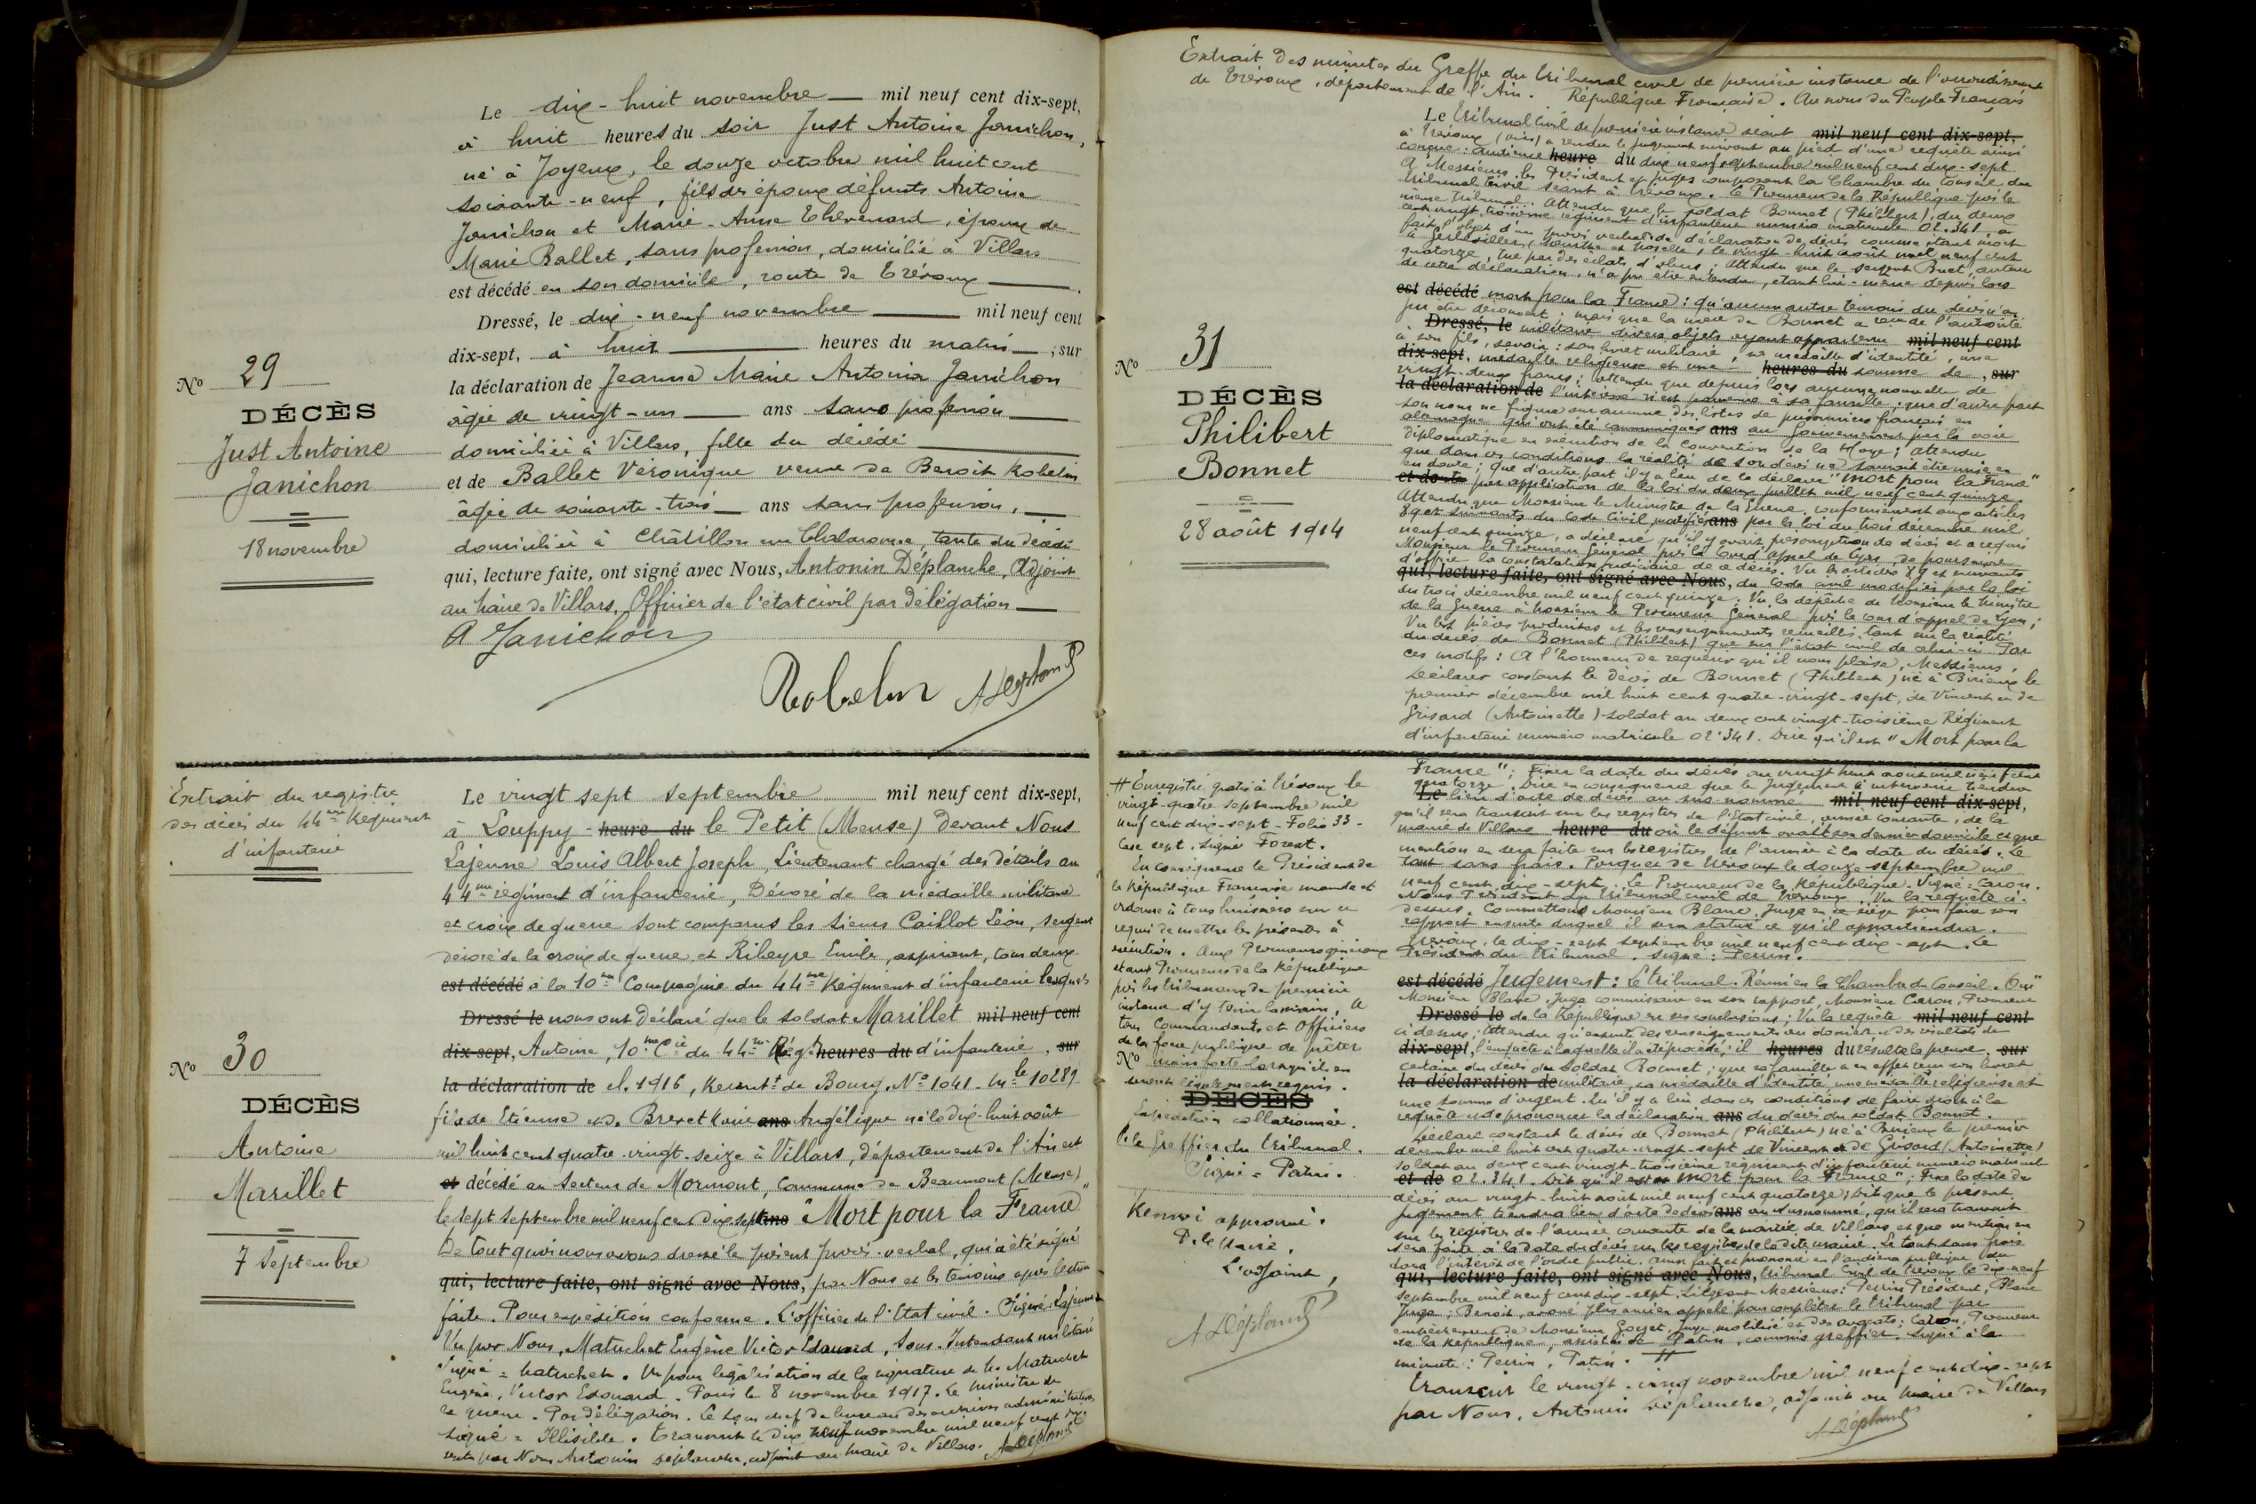 Le dix-huit novembre mil neuf cent dix-sept,
à huit heures du soir Just Antoine Janichon,
né à Joyeux, le douze octobre mil huit cent
soixante-neuf, fils des époux défunts Antoine
Janichon et Marie-Anne Thévenard, époux de
Marie Ballet, sans profession, domicilié à Villars
est décédé en son domicile, route de Trévoux
Dressé, le dix-neuf novembre mil neuf cent
dix-sept, à huit heures du matin, sur
la déclaration de Jeanne Marie Antonia Janichon
âgée de vingt-un ans sans profession
domiciliée à Villars, fille du décédé
et de Ballet Véronique veuve de Benoit Robelin
âgée de soixante-trois ans sans profession,
domiciliée à Châtillon sur Chalaronne, tante du décédé
qui, lecture faite, ont signé avec Nous, Antonin Déplanche, Adjoint
au Maire de Villars, Officier de l'état civil par délégation
A Janichon
Robelin A Déplanche
No 29
DÉCÈS
Just Antoine
Janichon
18 novembre
Extrait du registre
des décès du 44me Régiment
d'infanterie
No 30
DÉCÈS
Antoine
Marillet
7 Septembre
Le vingt sept septembre mil neuf cent dix-sept,
à Louppy - heure du le Petit (Meuse) Devant Nous
Lajeunne Louis Albert Joseph, Lieutenant chargé des détails au
44me régiment d'infanterie, Décoré de la médaille militaire
et croix de guerre sont comparus les sieurs Caillot Léon, sergent
décoré de la croix de guerre et Ribeyre Emile, aspirant, tous deux
est décédé à la 10me Compagnie du 44me Régiment d'infanterie lesquels
Dressé le nous ont déclaré que le soldat Marillet mil neuf cent
dix-sept, Antoine, 10me Cie du 44me Régt heures du d'infanterie, sur
la déclaration de cl. 1916, Recrutt de Bourg, No 1041. Mle 10289
fils de Etienne et de Brevet Marie ans Angélique né le dix-huit août
mil huit cent quatre-vingt-seize à Villars, département de l'Ain est
et décédé au secteur de Mormont, Commune de Beaumont (Meuse)
le sept septembre mil neuf cent dix sept ans "Mort pour la France"
De tout quoi nous avons dressé le présent procès-verbal, qui a été signé
qui, lecture faite, ont signé avec Nous, par Nous et les témoins après lecture
faite. Pour expédition conforme. L'officier de l'Etat civil. Signé: Lajeunne
Vu par Nous, Matuchet Eugène Victor Edouard, Sous-Intendant militaire
Signé = Matuchet. Vu pour légalisation de la signature de Mr Matuchet
Eugène, Victor Edouard. Paris le 8 novembre 1917. Le Ministre de
la guerre. Par délégation. Le sous chef de bureau des archives administratives
Signé = Illisible. Transcrit le dix neuf novembre mil neuf cent dix
sept par Nous Antonin Déplanche, adjoint au Maire de Villars. A Déplanche
Extrait des minutes du Greffe du tribunal civil de première instance de l'arrondissement
de Trévoux, département de l'Ain. République Française. Au nom du Peuple Français
No 31
DÉCÈS
Philibert
Bonnet
28 août 1914
Le tribunal civil de première instance séant mil neuf cent dix-sept,
à Trévoux (Ain) a rendu le jugement suivant au pied d'une requête ainsi
conçue: audience heure du dix neuf septembre mil neuf cent dix-sept
A Messieurs les Président et Juges composant la Chambre du Conseil du
tribunal civil séant à Trévoux. Le Procureur de la République près le
même tribunal. Attendu que le soldat Bonnet (Philibert) du deux
cent vingt-troisième régiment d'infanterie numéro matricule 02.341 a
fait l'objet d'un procès verbal de déclaration de décès comme étant mort
à Gerbéviller, Meurthe et Moselle, le vingt-huit août mil neuf cent
quatorze, tué par des éclats d'obus; Attendu que le sergent Buet, auteur
de cette déclaration, n'a pu être entendu, étant lui-même depuis lors
est décédé mort pour la France; qu'aucun autre témoin du décès n'a
pu être découvert; mais que la mère de Bonnet a reçu de l'autorité
Dressé, le militaire divers objets ayant appartenu mil neuf cent
à son fils, savoir: son livret militaire, sa médaille d'identité, une
dix-sept, médaille religieuse et une heures du somme de, sur
vingt-deux francs; attendu que depuis lors aucune nouvelle de
la déclaration de l'intéressé n'est parvenue à sa famille; que d'autre part
son nom ne figure sur aucune des listes de prisonniers français en
Allemagne qui ont été communiquées ans au Gouvernement par la voie
diplomatique en exécution de la Convention de la Haye; attendu
que dans ces conditions la réalité de son décès ne saurait être mise en
en doute; que d'autre part il y a lieu de le déclarer "mort pour la France"
par application de la loi du deux juillet mil neuf cent quinze.
Attendu que Monsieur le Ministre de la Guerre, conformément aux articles
89 et suivants du Code Civil, modifiés ans par la loi du trois décembre mil
neuf cent quinze, a déclaré qu'il y avait présomption de décès et a requis
Monsieur le Procureur Général près la Cour d'appel de Lyon de poursuivre
d'office la constatation judiciaire de ce décès. Vu les articles 89 et suivants
qui, lecture faite, ont signé avec Nous, du Code civil modifiés par la loi
du trois décembre mil neuf cent quinze. Vu la dépêche de Monsieur le Ministre
de la Guerre à Monsieur le Procureur Général près la cour d'appel de Lyon;
Vu les pièces produites et les renseignements recueillis tant sur la réalité
du décès de Bonnet (Philibert) que sur l'état civil de celui-ci. Par
ces motifs: A l'honneur de requérir qu'il vous plaise, Messieurs,
Déclarer constant le décès de Bonnet (Philibert) né à Birieux le
premier décembre mil huit cent quatre-vingt-sept, de Vincent et de
Grisard (Antoinette)-soldat au deux cent vingt-troisième Régiment
d'infanterie numéro matricule 02.341. Dire qu'il est "Mort pour la
France"; Fixer la date du décès au vingt huit août mil neuf cent
quatorze. Dire en conséquence que le jugement à intervenir tiendra
Le lieu d'acte de décès au sus nommé mil neuf cent dix-sept,
qu'il sera transcrit sur les registres de l'Etat civil, année courante, de la
mairie de Villars heure du où le défunt avait son dernier domicile et que
mention en sera faite sur les registres de l'année à la date du décès. Le
tout sans frais. Parquet de Trévoux le douze septembre mil
neuf cent dix-sept. Le Procureur de la République. Signé: Caron.
Nous Président du Tribunal civil de Trévoux. Vu la requête ci-
dessus. Commettons Monsieur Blanc, Juge en ce siège pour faire son
rapport ensuite duquel il sera statué ce qu'il appartiendra.
Trévoux, le dix-sept septembre mil neuf cent dix-sept. Le
Président du tribunal. signé: Perrin.
est décédé Jugement: Le tribunal. Réuni en la Chambre du Conseil. Ouï
Monsieur Blanc, Juge commissaire en son rapport, Monsieur Caron, Procureur
Dressé le de la République en ses conclusions; Vu la requête mil neuf cent
ci dessus; Attendu qu'ensuite des renseignements au dossier et des résultats de
dix-sept, l'enquête à laquelle il a été procédé; il heures du résulte la preuve, sur
certaine du décès du soldat Bonnet; que sa famille a en effet reçu son livret
la déclaration de militaire, sa médaille d'identité une médaille religieuse et
une somme d'argent. Qu'il y a lieu dans ces conditions de faire droit à la
requête et de prononcer la déclaration ans du décès du soldat Bonnet.
Déclare constant le décès de Bonnet (Philibert) né à Birieux le premier
décembre mil huit cent quatre-vingt-sept de Vincent et de Grisard (Antoinette)
soldat au deux cent vingt-troisième régiment d'infanterie numéro matricule
et de 02.341. Dit qu'il est "mort pour la France"; Fixe la date du
décès au vingt-huit août mil neuf cent quatorze; Dit que le présent
jugement tiendra lieu d'acte de décès ans au susnommé, qu'il sera transcrit
sur les registres de l'année courante de la mairie de Villars et que mention en
sera faite à la date du décès sur les registres de la dite mairie. Le tout sans frais
dans l'intérêt de l'ordre public. Ainsi fait et prononcé en l'audience publique du
qui, lecture faite, ont signé avec Nous, tribunal civil de Trévoux le dix-neuf
septembre mil neuf cent dix-sept. Siégeant Messieurs: Perrin Président, Blanc
Juge; Benoit, avoué plus ancien appelé pour compléter le tribunal par
empêchement de Monsieur Goyet, Juge mobilisé et des avocats; Caron, Procureur
de la République, assistés de Patin, commis greffier. Signé à la
minute: Perrin, Patin. #
Transcrit le vingt-cinq novembre mil neuf cent dix-sept
par Nous, Antonin Déplanche, adjoint au Maire de Villars
A Déplanche
# Enregistré gratis à Trévoux le
vingt-quatre septembre mil
neuf cent dix-sept - Folio 33 -
Case sept. Signé Forest.
En conséquence le Président de
la République Française mande et
ordonne à tous huissiers sur ce
requis de mettre les présentes à
exécution. Aux Procureurs généraux
et aux Procureurs de la République
près les tribunaux de première
instance d'y tenir la main, A
tous Commandants et Officiers
de la force publique de prêter
No main forte lorsqu'ils en
seront légalement requis.
DÉCÈS
Expédition collationnée.
P. le Greffier du tribunal.
Signé = Patin.
Renvoi approuvé.
P. le Maire,
L'adjoint,
A Déplanche